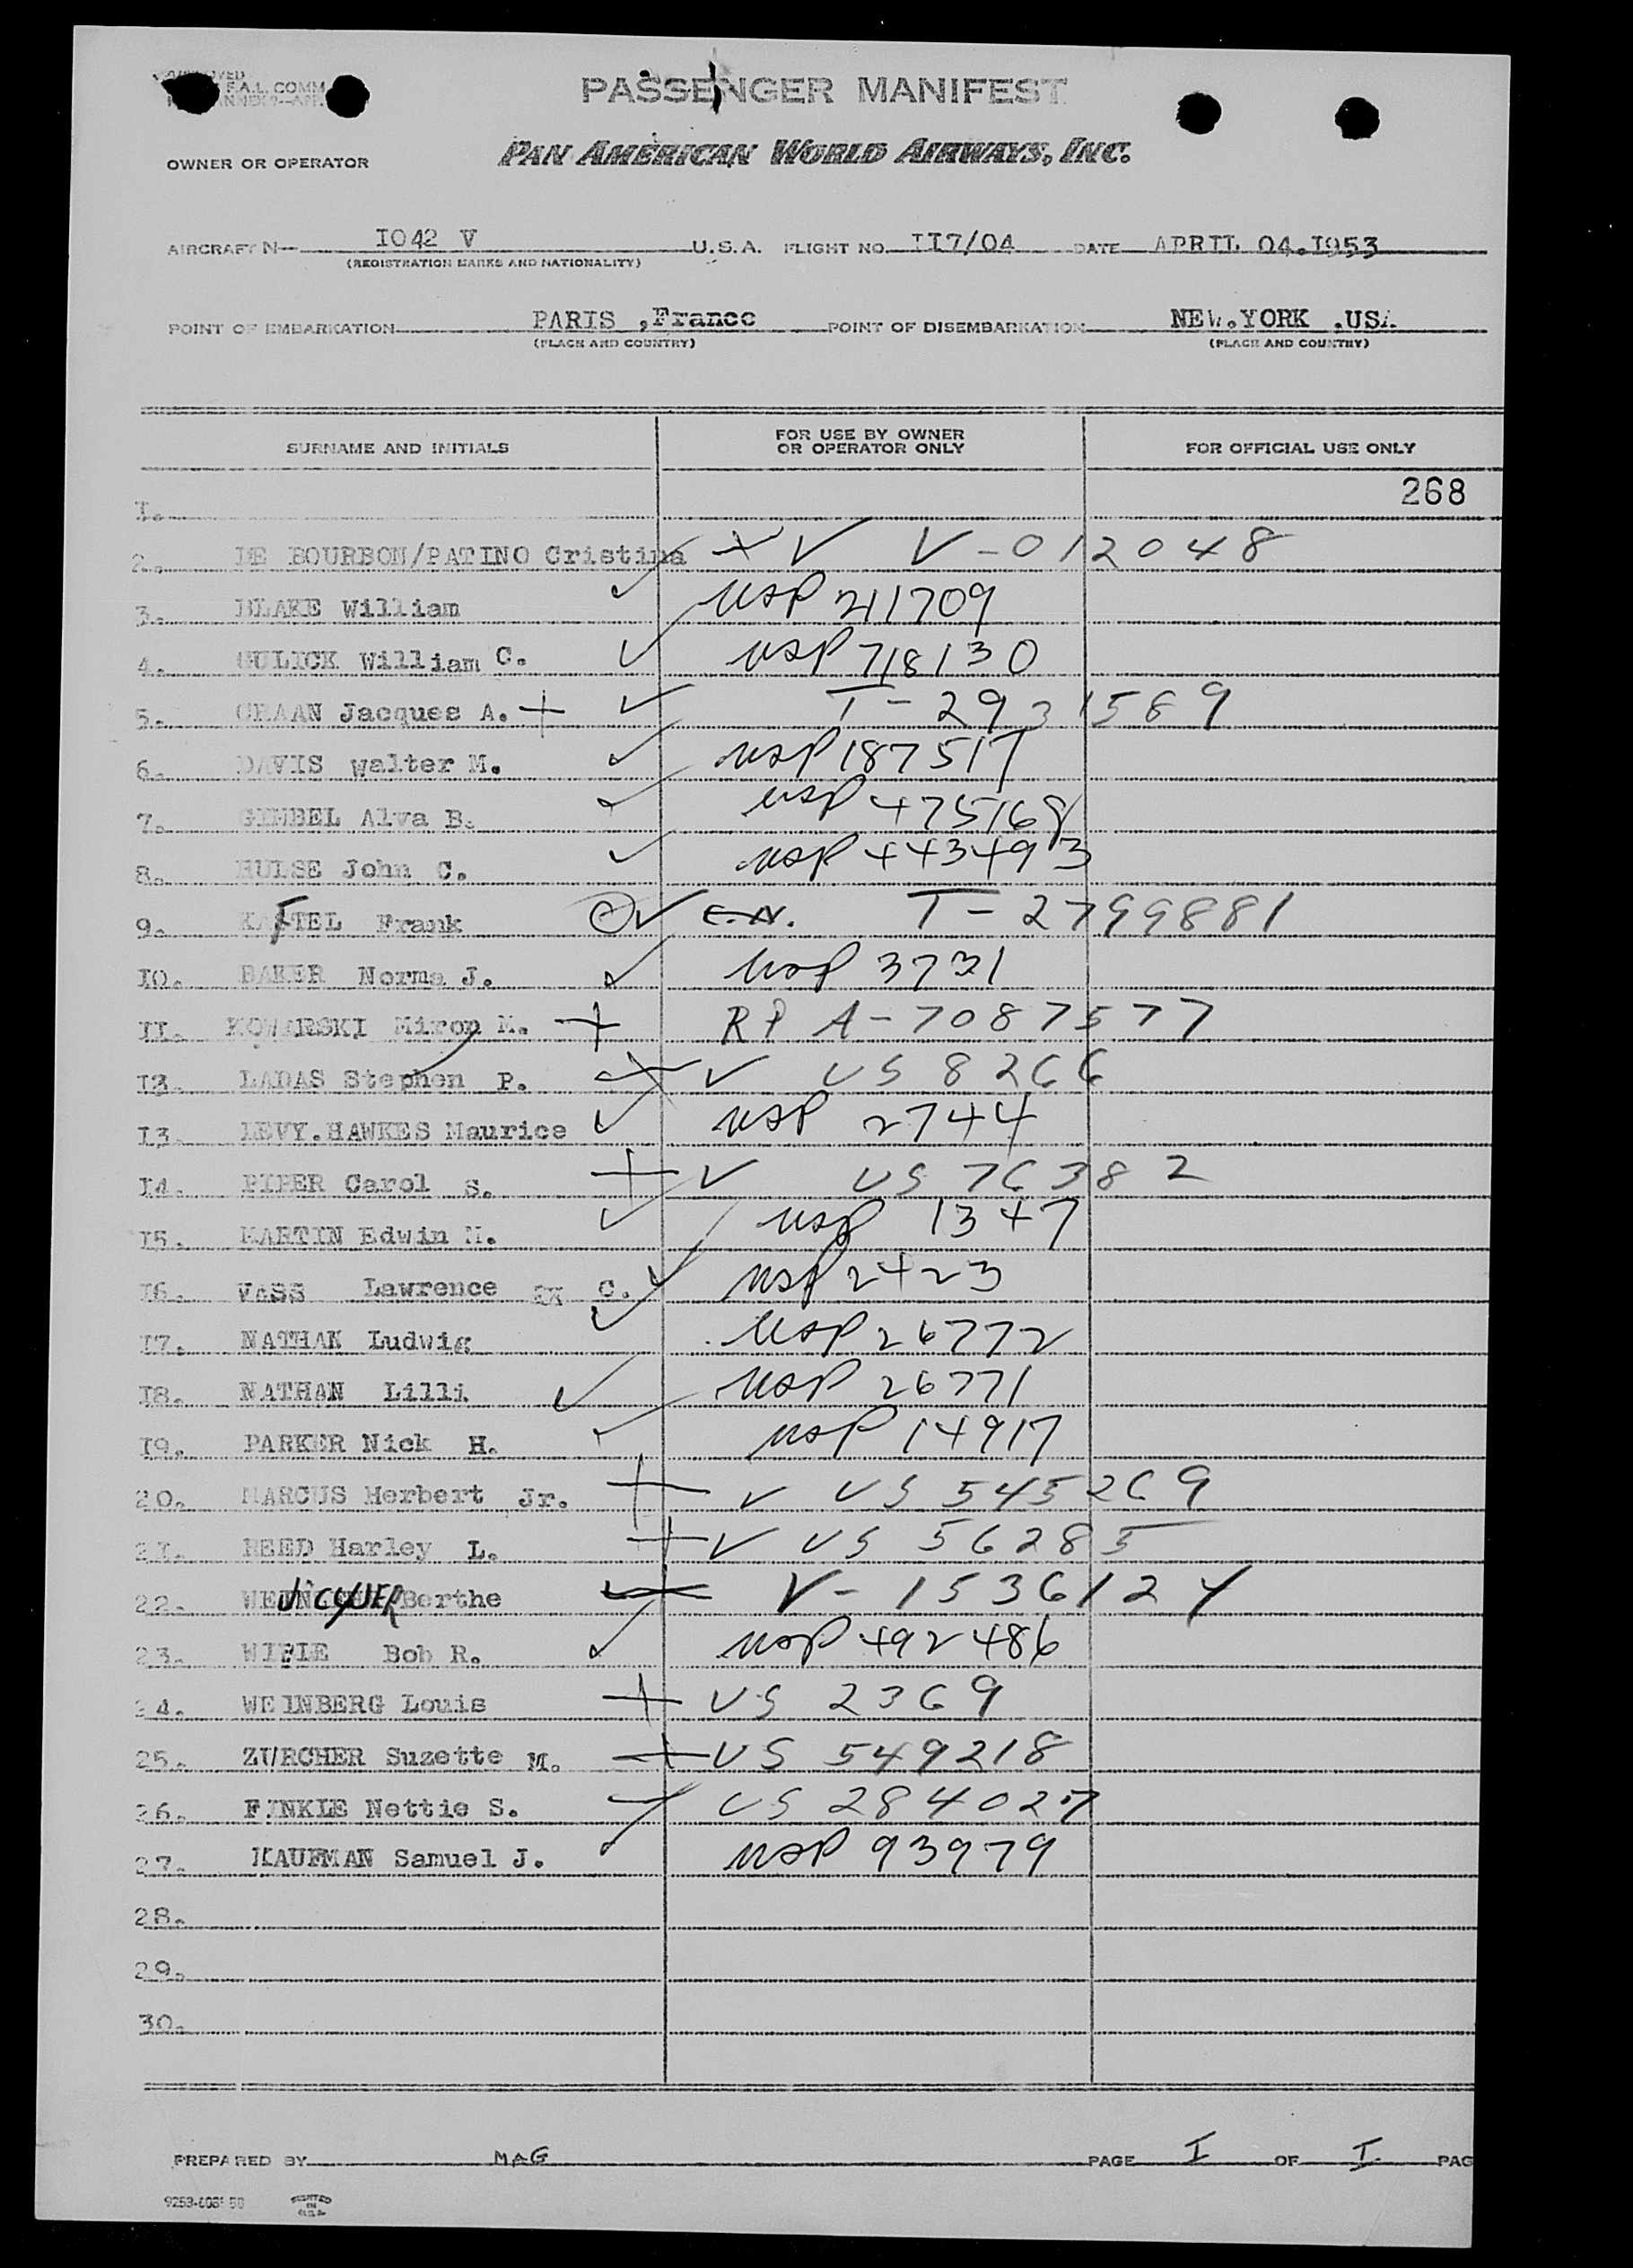 F.A.L. COMM
PASSENGER MANIFEST
OWNER OR OPERATOR PAN AMERICAN WORLD AIRWAYS, INC.
AIRCRAFT N I042 V U.S.A. FLIGHT NO. II7/04 DATE APRIL 04.I953
(REGISTRATION MARKS AND NATIONALITY)
POINT OF EMBARKATION PARIS ,France POINT OF DISEMBARKATION NEW.YORK .USA
(PLACE AND COUNTRY) (PLACE AND COUNTRY)
SURNAME AND INITIALS FOR USE BY OWNER OR OPERATOR ONLY FOR OFFICIAL USE ONLY
I. 268
2. DE BOURBON/PATINO Cristina + V V-012048
3. BLAKE William USP 211709
4. GULICK William C. USP 718130
5. GRAAN Jacques A. + T-2931589
6. DAVIS Walter M. USP 187517
7. GIMBEL Alva B. USP 475168
8. HULSE John C. USP 443493
9. KAFTEL Frank E.N. T-2799881
I0. BAKER Norma J. USP 3731
II. KOWARSKI Miron M. + RP A-7087577
I3. LADAS Stephen P. + V US 8266
I3. LEVY.HAWKES Maurice USP 2744
I4. PIPER Carol S. + V US 76382
I5. MARTIN Edwin M. USP 1347
I6. VASS Lawrence C. USP 2423
I7. NATHAN Ludwig USP 26772
I8. NATHAN Lilli USP 26771
I9. PARKER Nick H. USP 14917
20. MARCUS Herbert Jr. + V US 545269
2I. REED Harley L. + V US 56285
22. Berthe V-1536124
23. WIPLE Bob R. USP 492486
24. WEINBERG Louis + US 2369
25. ZURCHER Suzette M. + US 549218
26. FINKLE Nettie S. US 284027
27. KAUFMAN Samuel J. USP 93979
28.
29.
30.
PREPARED BY MAG PAGE I OF I PAG
PRINTED IN U.S.A.